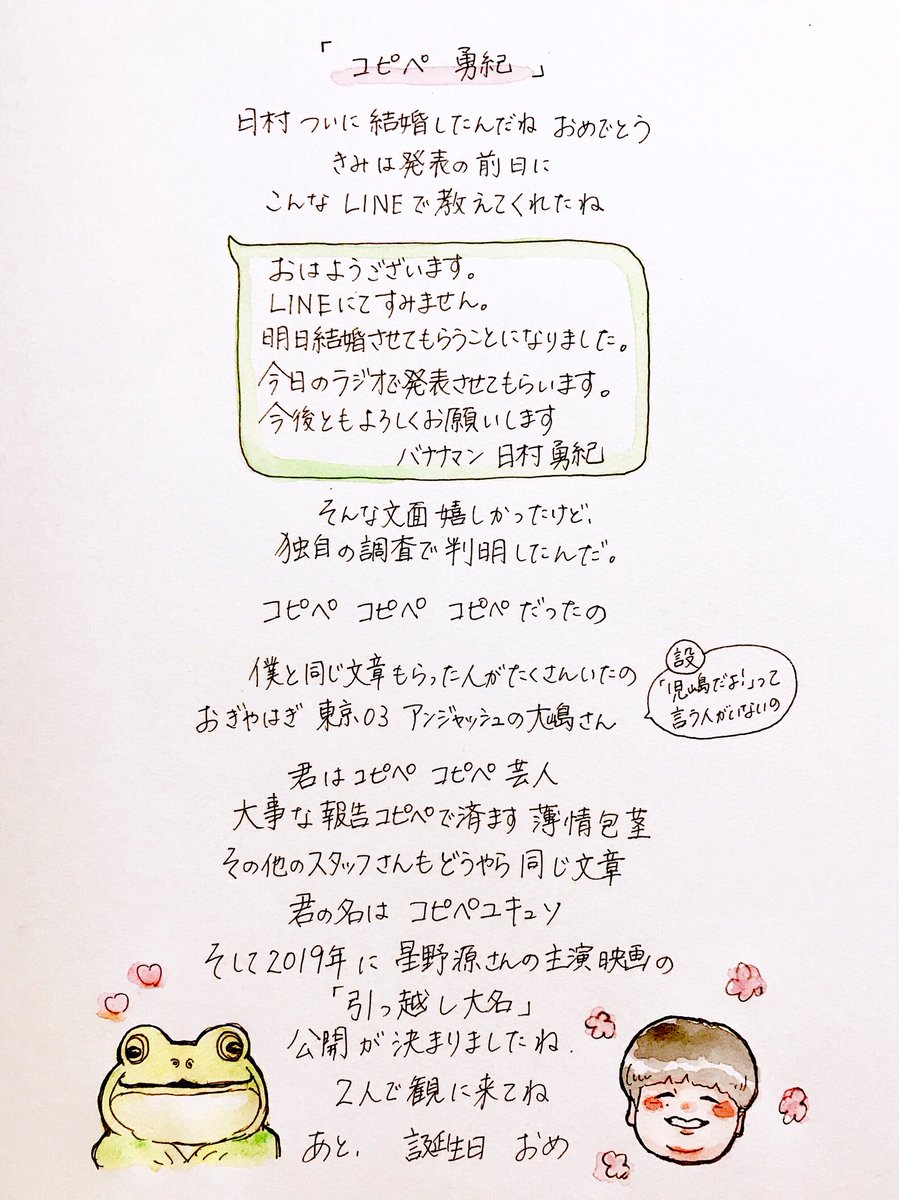 「コピペ 勇紀」
日村 ついに 結婚したんだね おめでとう
きみは発表の前日に
こんな LINEで教えてくれたね
おはようございます。
LINEにてすみません。
明日結婚させてもらうことになりました。
今日のラジオで発表させてもらいます。
今後ともよろしくお願いします
バナナマン 日村勇紀
そんな文面嬉しかったけど、
独自の調査で判明したんだ。
コピペ コピペ コピペだったの
僕と同じ文章もらった人がたくさんいたの
おぎやはぎ 東京03 アンジャッシュの大嶋さん
設
「児嶋だよ!」って
言う人がいないの
君はコピペ コピペ芸人
大事な報告コピペで済ます 薄情包茎
その他のスタッフさんもどうやら同じ文章
君の名は コピペユキュソ
そして2019年に星野源さんの主演映画の
「引っ越し大名」
公開が決まりましたね.
2人で観に来てね
あと、 誕生日 おめ